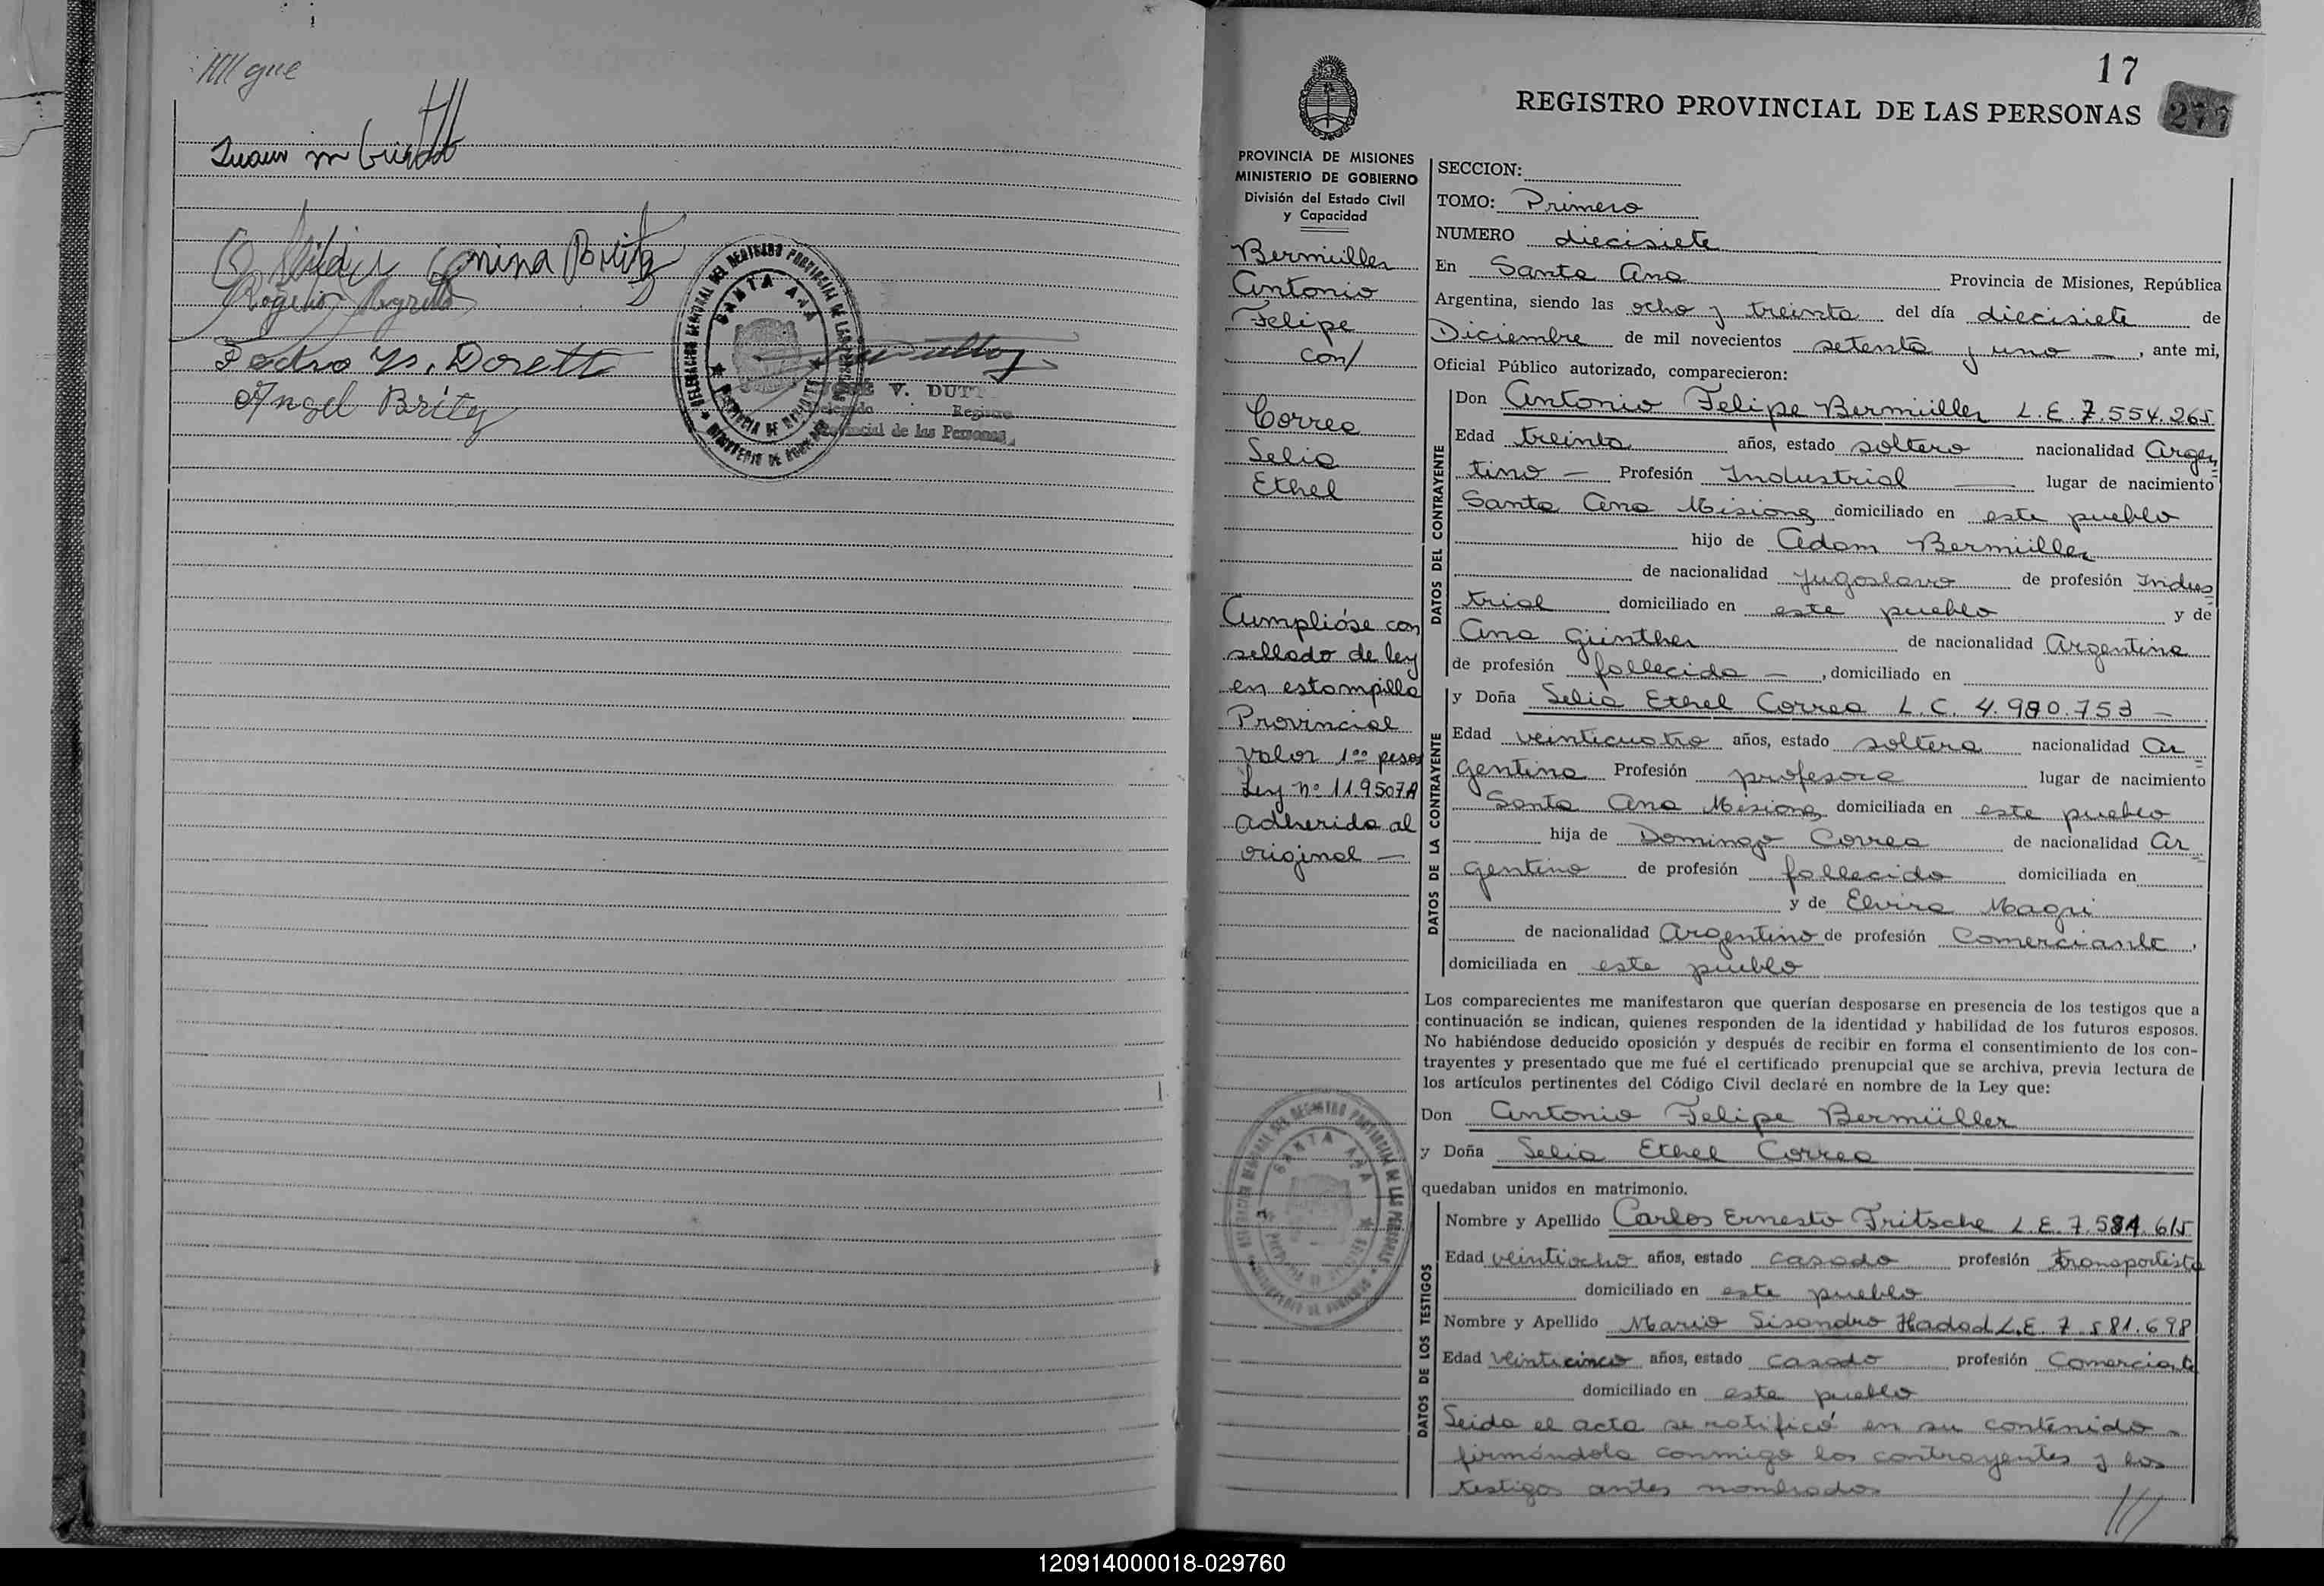 que
Juan m
Pedro
Angel Britez
DELEGACION GENERAL DEL REGISTRO PROVINCIAL DE LAS PERSONAS
SANTA ANA
MINISTERIO DE GOBIERNO
V. DUT
Delegado Registro
Provincial de las Personas
17
REGISTRO PROVINCIAL DE LAS PERSONAS
277
PROVINCIA DE MISIONES
MINISTERIO DE GOBIERNO
División del Estado Civil
y Capacidad
Bermüller
Antonio
Felipe
con/
Correa
Selia
Ethel
Cumplióse con
sellado de ley
en estampilla
Provincial
valor 1ºº pesos
Ley nº 119507A
adherida al
original —
SECCION:
TOMO: Primero
NUMERO diecisiete
En Santa Ana Provincia de Misiones, República
Argentina, siendo las ocho y treinta del día diecisiete de
Diciembre de mil novecientos setenta y uno —, ante mi,
Oficial Público autorizado, comparecieron:
DATOS DEL CONTRAYENTE
Don Antonio Felipe Bermüller L.E. 7.554.265
Edad treinta años, estado soltero nacionalidad Argen
tino — Profesión Industrial — lugar de nacimiento
Santa Ana Misiones domiciliado en este pueblo
hijo de Adam Bermüller
de nacionalidad Yugoslavo de profesión Indus
trial domiciliado en este pueblo y de
Ana Günther de nacionalidad Argentina
de profesión fallecida —, domiciliado en
DATOS DE LA CONTRAYENTE
y Doña Selia Ethel Correa L.C. 4.980.753 —
Edad veinticuatro años, estado soltera nacionalidad Ar
gentina Profesión profesora lugar de nacimiento
Santa Ana Misiones domiciliada en este pueblo
hija de Domingo Correa de nacionalidad Ar
gentino de profesión fallecido domiciliada en
y de Elvira Magri
de nacionalidad Argentina de profesión Comerciante,
domiciliada en este pueblo
Los comparecientes me manifestaron que querían desposarse en presencia de los testigos que a
continuación se indican, quienes responden de la identidad y habilidad de los futuros esposos.
No habiéndose deducido oposición y después de recibir en forma el consentimiento de los con-
trayentes y presentado que me fué el certificado prenupcial que se archiva, previa lectura de
los artículos pertinentes del Código Civil declaré en nombre de la Ley que:
Don Antonio Felipe Bermüller
y Doña Selia Ethel Correa
quedaban unidos en matrimonio.
DATOS DE LOS TESTIGOS
Nombre y Apellido Carlos Ernesto Fritsche L.E. 7.584.615
Edad veintiocho años, estado casado profesión transportista
domiciliado en este pueblo
Nombre y Apellido Mario Lisandro Hadad L.E. 7.581.698
Edad veinticinco años, estado casado profesión Comerciante
domiciliado en este pueblo
Leida el acta se ratificó en su contenido
firmándola conmigo los contrayentes y los
testigos antes nombrados
///
120914000018-029760